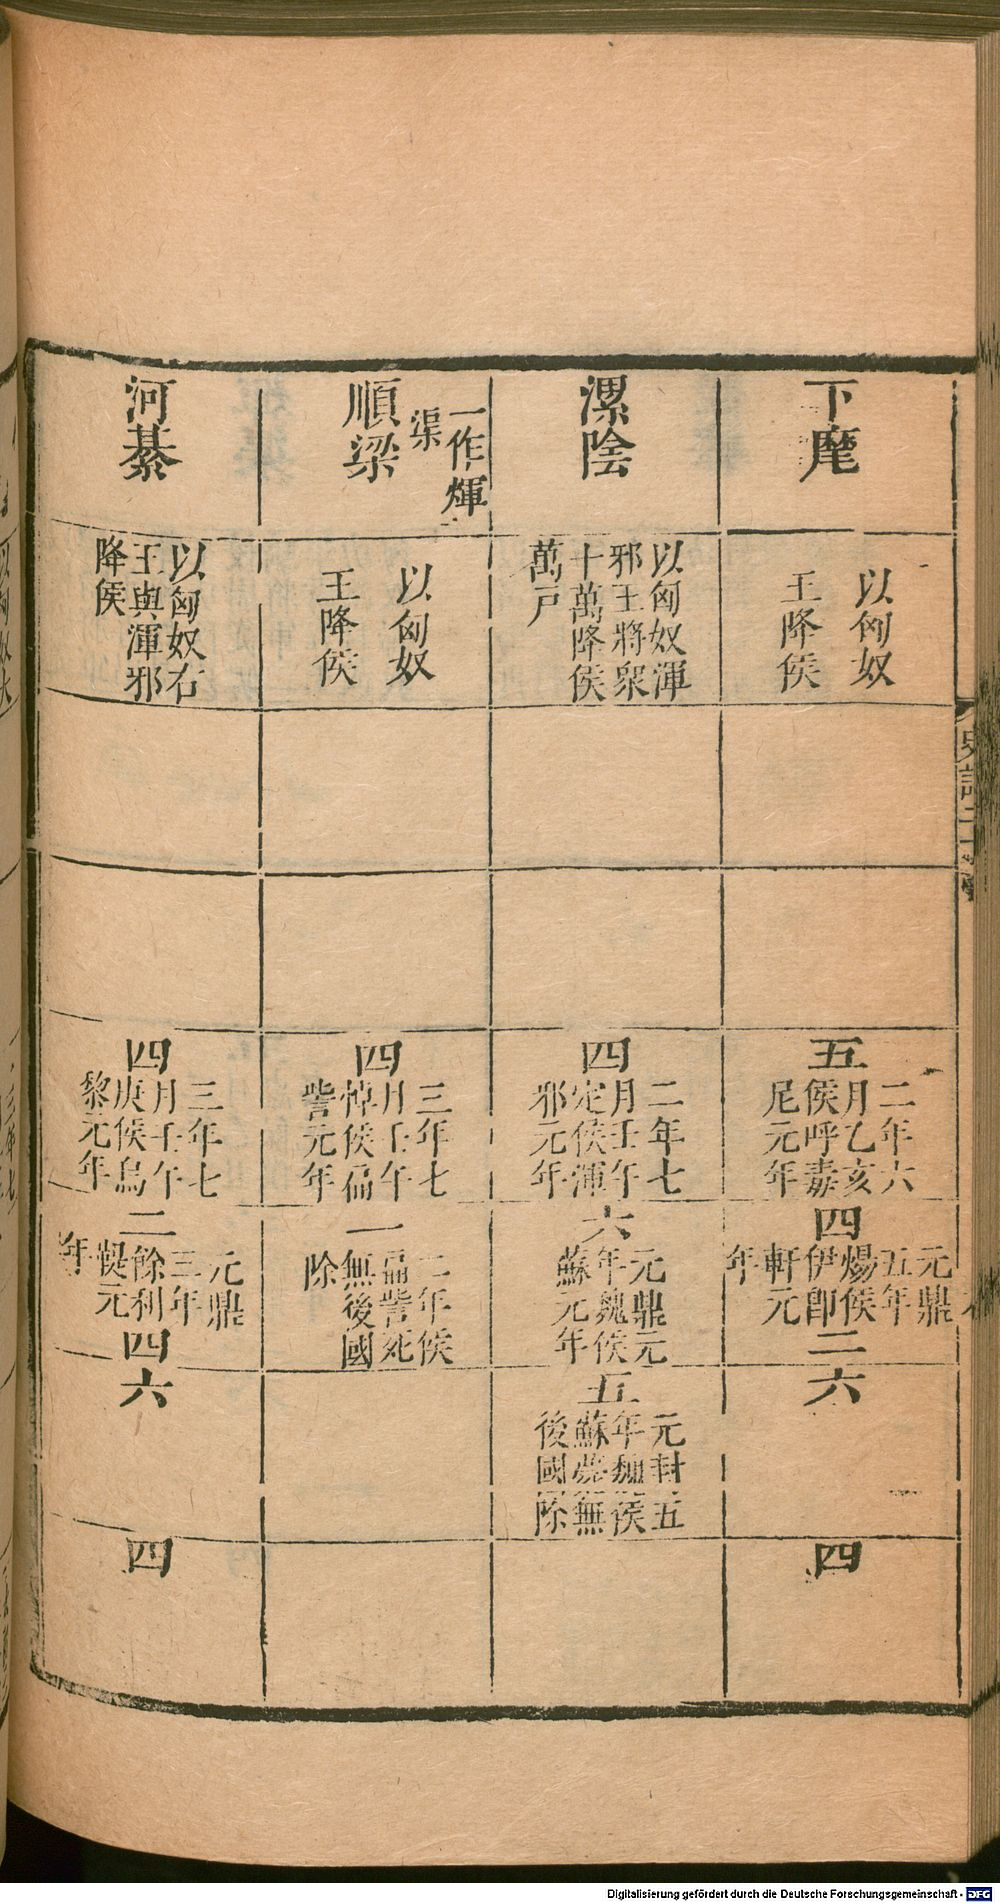 下麾
以匈奴
王降侯
五
二年六
月乙亥
侯呼毒
尼元年
四
元鼎
五年
煬侯
伊即
軒元
年
二
六
四
漯陰
以匈奴渾
邪王將衆
十萬降侯
萬戸
四
二年七
月壬午
定侯渾
邪元年
六
元鼎元
年魏侯
蘇元年
五
元封五
年魏侯
蘇薨無
後國除
順梁
一作煇
渠
以匈奴
王降侯
四
三年七
月壬午
悼侯扁
訾元年
一
二年侯
扁訾死
無後國
除
河綦
以匈奴右
王與渾邪
降侯
四
三年七
月壬午
庚侯烏
黎元年
二
元鼎
三年
餘利
鞮元
年
四
六
四
史記二十
Digitalisierung gefördert durch die Deutsche Forschungsgemeinschaft - DFG